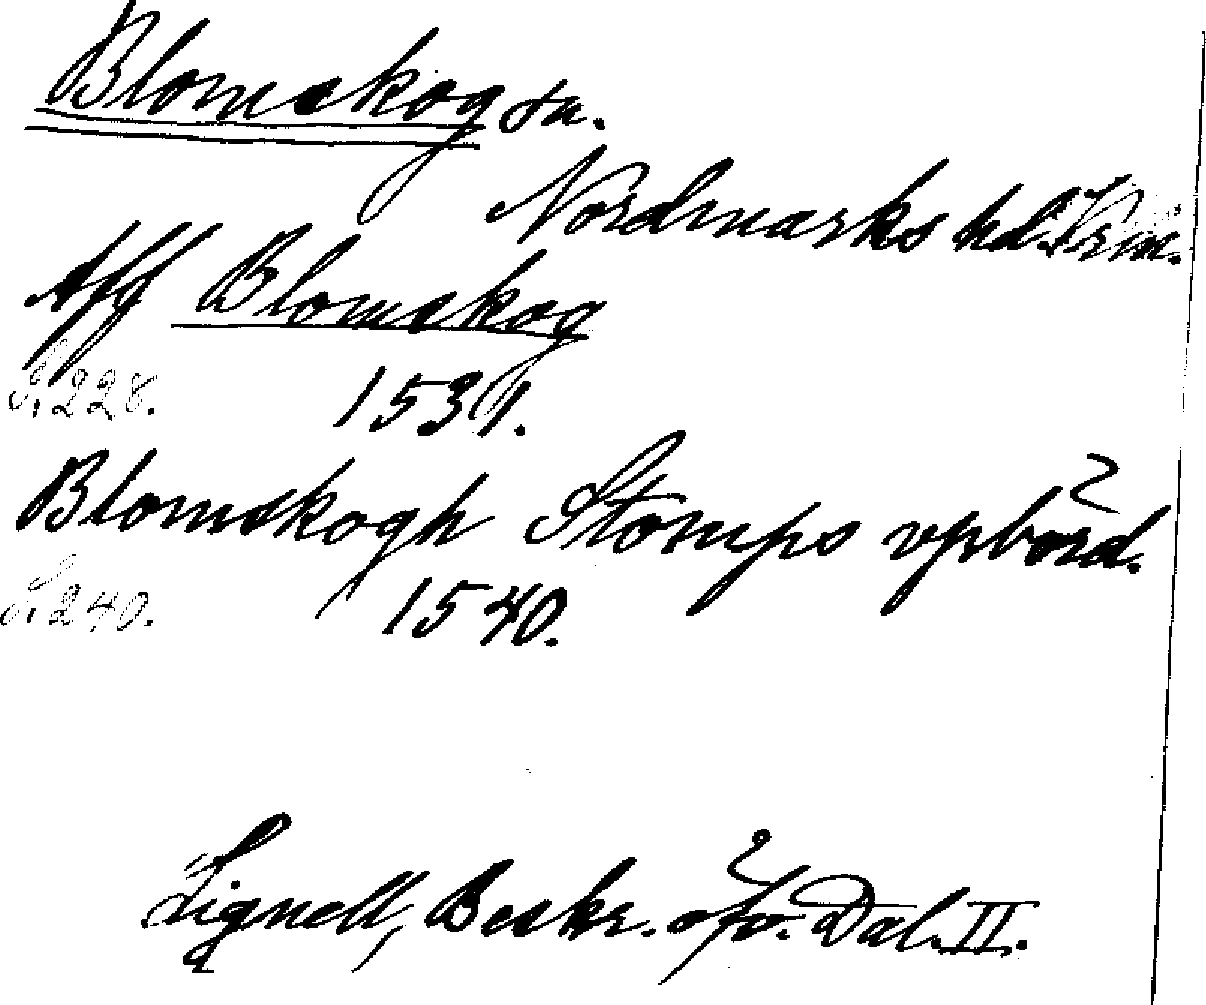 Blomskog sn.
Nordmarks hd. Vrm.
Aff Blomskog
S. 228. 1531.
Blomskogh Stomps vpbörd.
S. 240. 1540.
Lignell, Beskr. öfv. Dal. II.